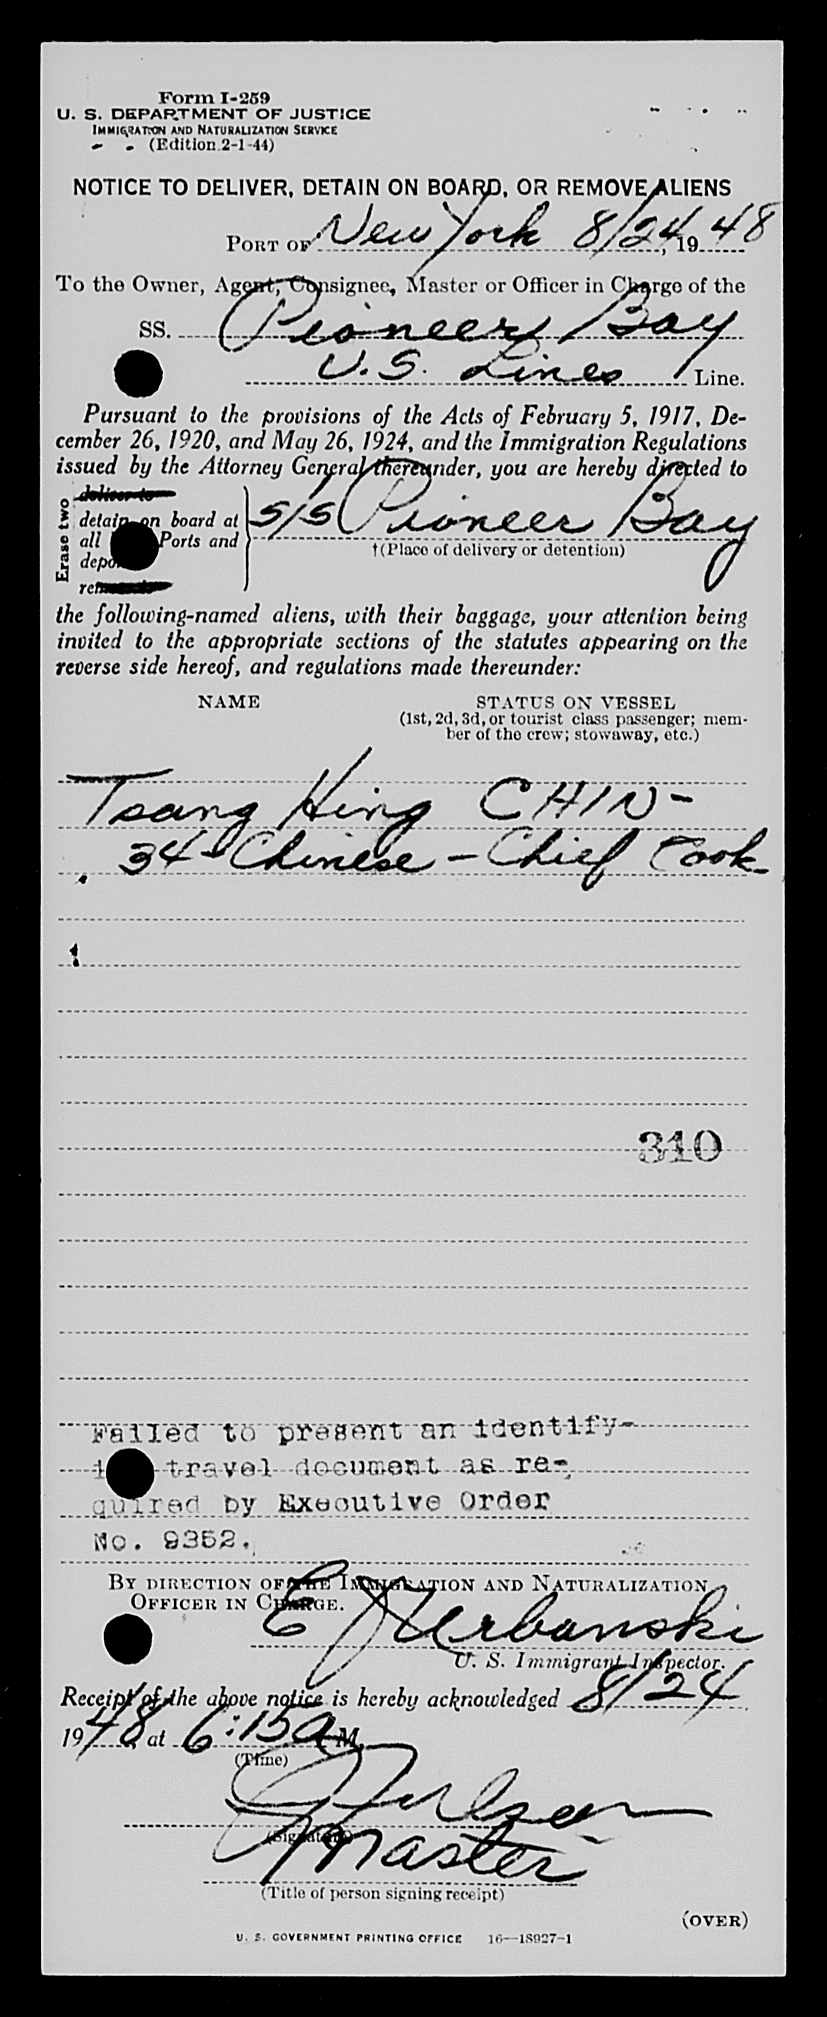 Form I-259
U. S. DEPARTMENT OF JUSTICE
IMMIGRATION AND NATURALIZATION SERVICE
(Edition 2-1-44)
NOTICE TO DELIVER, DETAIN ON BOARD, OR REMOVE ALIENS
PORT OF New York 8/24, 1948
To the Owner, Agent, Consignee, Master or Officer in Charge of the
SS. Pioneer Bay
U.S. Lines Line.
Pursuant to the provisions of the Acts of February 5, 1917, De-
cember 26, 1920, and May 26, 1924, and the Immigration Regulations
issued by the Attorney General thereunder, you are hereby directed to
Erase two
deliver to
detain on board at
all Ports and
S/S Pioneer Bay
†(Place of delivery or detention)
the following-named aliens, with their baggage, your attention being
invited to the appropriate sections of the statutes appearing on the
reverse side hereof, and regulations made thereunder:
NAME STATUS ON VESSEL
(1st, 2d, 3d, or tourist class passenger; mem-
ber of the crew; stowaway, etc.)
Tsang Hing CHIN-
34-Chinese-Chief Cook
310
Failed to present an identify-
travel document as re-
quired by Executive Order
No. 9352.
BY DIRECTION OF THE IMMIGRATION AND NATURALIZATION
OFFICER IN CHARGE.
E J Urbanski
U. S. Immigrant Inspector.
Receipt of the above notice is hereby acknowledged 8/24
1948 at 6:15 a M.
(Time)
(Signature)
Master
(Title of person signing receipt)
(OVER)
U. S. GOVERNMENT PRINTING OFFICE 16—18927-1